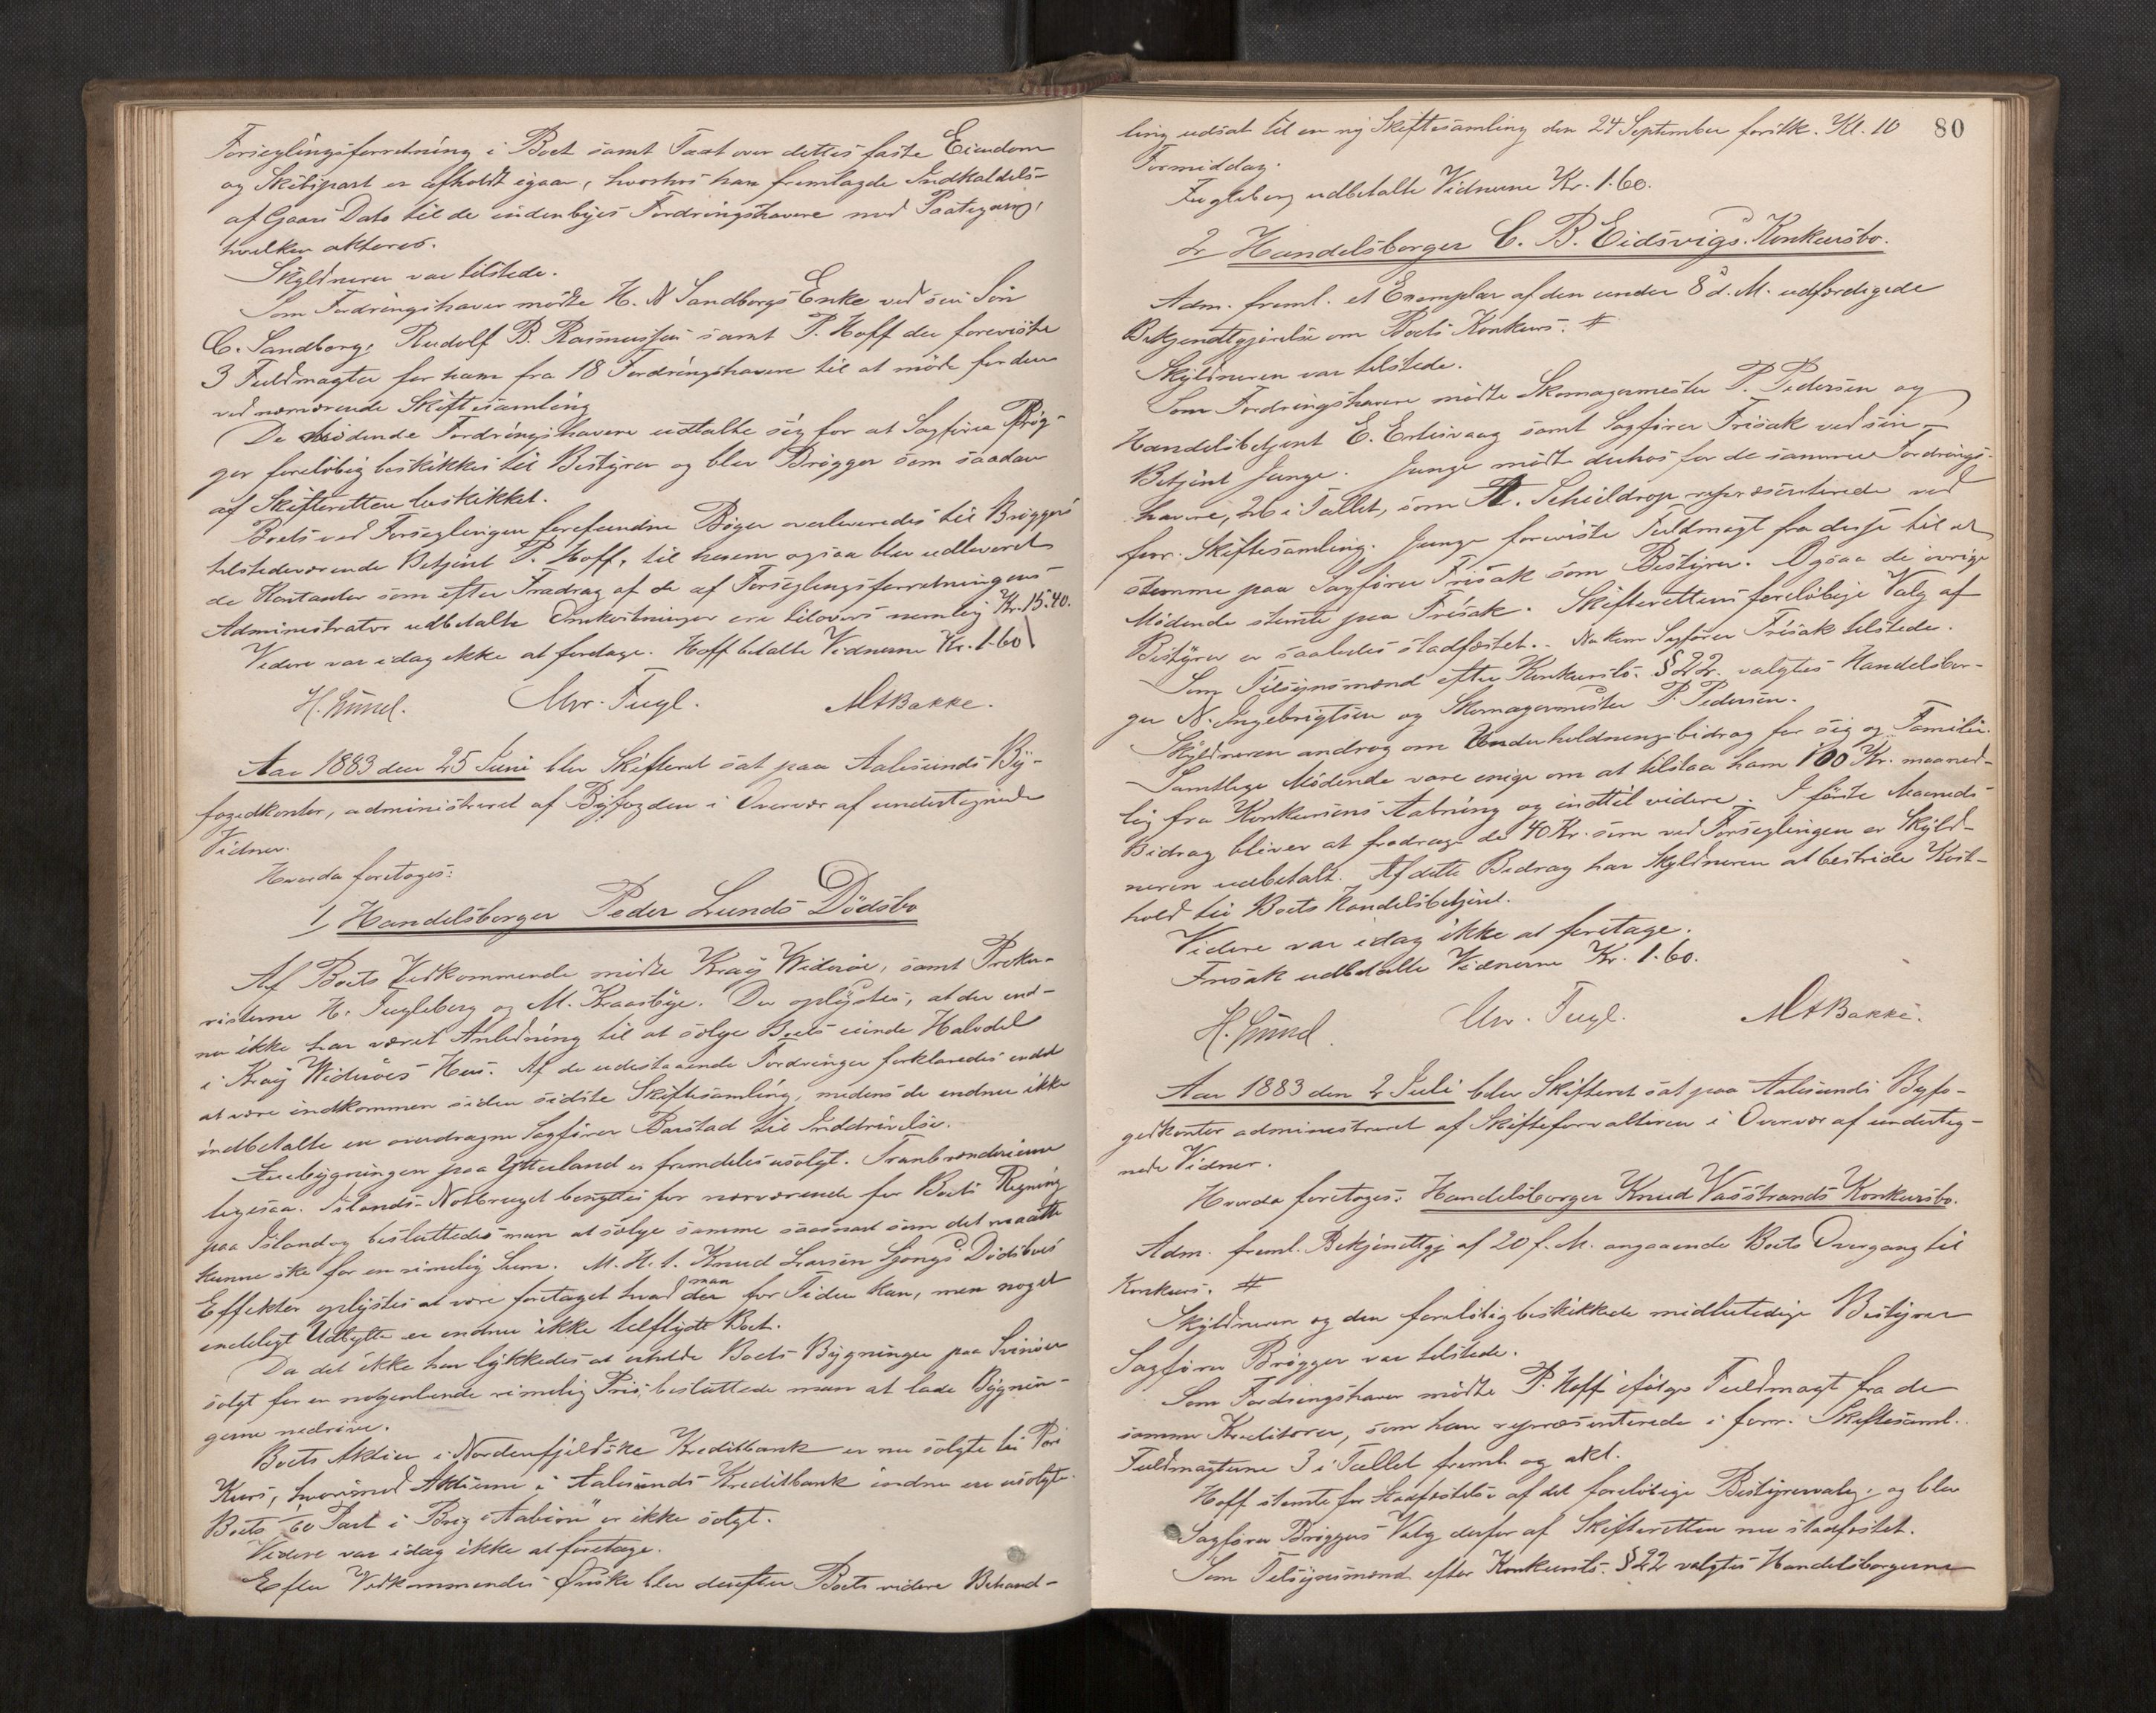 Forseglingsforretning i Boet samt Taxt over dettes faste Eiendom
og Skibspart er afholdt igaar, hvorhos han fremlagde Indkaldels-
af Gaars Dato til de indenbyes Fordringshavere med Paategning,
hvilken akteres.
Skyldneren var tilstede.
Som Fordringshaver mødte H. N Sandborgs Enke ved sin Søn
C. Sandborg, Rudolf B. Rasmussen samt P. Hoff der foreviste
3 Fuldmagter for ham fra 18 Fordringshavere til at møde for dem
ved nærværende Skiftesamling
De mødende Fordringshavere udtalte sig for at Sagfører Brøg-
ger foreløbig beskikkes til Bestyrer og blev Brøgger som saadan
af Skifteretten beskikket.
Boets ved Forseglingen forefundne Bøger overleveredes til Brøggers
tilstedeværende Betjent P. Hoff, til hvem ogsaa blev udleveret
de Kontanter som efter Fradrag af de af Forseglingsforretningens
Administrator udbetalte Omkostninger ere tilovers nemlig Kr. 15.40.
Videre var idag ikke at foretage. Hoff betalte Vidnerne Kr. 1.60
H. Lund. Chr. Fugl. MABakke.
Aar 1883 den 25 Juni blev Skifteret sat paa Aalesunds By-
fogedkontor, administreret af Byfogden i Overvær af undertegnede
Vidner.
Hvorda foretoges:
1/ Handelsborger Peder Lunds Dødsbo
Af Boets Vedkommende mødte Kraij Widerøe, samt Proku-
risterne H. Fugleberg og M. Kraasbye. Der oplystes, at der end-
nu ikke har været Anledning til at sælge Boets eiende Halvdel
i Kraij Widerøes Hus. Af de udestaaende Fordringer forklaredes endel
at være indkommen siden sidste Skiftesamling, medens de endnu ikke
indbetalte er overdragne Sagfører Barstad til Inddrivelse.
bygningen paa Ytterland er fremdeles usolgt. Tranbrænderierne
ligesaa. Islands-Notbruget benyttes for nærværende for Boets Regning
paa Island og besluttedes man at sælge samme saasnart som det maatte
kunne ske for en rimelig Sum. M. H. t. Knud Larsen Dødsboes
Effekter oplystes at være foretaget hvad man der for Tiden kan, men noget
endeligt Udbytte er endnu ikke tilflydt Boet.
Da det ikke har lykkedes at erholde Boets Bygninger paa Svinøen
solgt for en nogenlunde rimelig Pris, besluttede man at lade Bygnin-
gerne nedrive.
Boets Aktier i Nordenfjeldske Kreditbank er nu solgte til Pari
Kurs, hvorimod Aktierne i Aalesunds Kreditbank endnu ere usolgte.
Boets 1/60 Part i Brig "Aabiörn" er ikke solgt.
Videre var idag ikke at foretage.
Efter Vedkommendes Ønske blev derefter Boets videre Behand-
80
ling udsat til en ny Skiftesamling den 24 September førstk. Kl. 10
Formiddag.
Fugleberg udbetalte Vidnerne Kr. 1.60.
2/ Handelsborger C. B. Eidsvigs Konkursbo.
Adm. freml. et Exemplar af den under 8 d. M. udfærdigede
Bekjendtgjørelse om Boets Konkurs. #
Skyldneren var tilstede.
Som Fordringshavere mødte Skomagermester P. Pedersen og
Handelsbetjent E. Ertesvaag samt Sagfører Frisak ved sin
Betjent Junge. Junge mødte derhos for de samme Fordrings-
havere, 26 i Tallet, som A. Schieldrop repræsenterede ved
forr. Skiftesamling. Junge foreviste Fuldmagt fra disse til at
stemme paa Sagfører Frisak som Bestyrer. Ogsaa de øvrige
Mødende stemte paa Frisak. Skifterettens foreløbige Valg af
Bestyrer er saaledes stadfæstet. Nu kom Sagfører Frisak tilstede.
Som Tilsynsmænd efter Konkursls. §22. valgtes Handelsbor-
ger N. Ingebrigtsen og Skomagermester P. Pedersen.
Skyldneren androg om Underholdningsbidrag for sig og Familie.
Samtlige Mødende vare enige om at tilstaa ham 100 Kr. maaned-
lig fra Konkursens Aabning og indtil videre. I første Maaneds
Bidrag bliver at fradrage de 40 Kr. som ved Forseglingen er Skyld-
neren udbetalt. Af dette Bidrag har Skyldneren at bestride Kost-
hold til Boets Handelsbetjent.
Videre var idag ikke at foretage.
Frisak udbetalte Vidnerne Kr. 1.60.
H. Lund. Chr. Fugl. MABakke.
Aar 1883 den 2 Juli blev Skifteret sat paa Aalesunds Byfo-
gedkontor administreret af Skifteforvalteren i Overvær af underteg-
nede Vidner.
Hvorda foretoges: Handelsborger Knud Vasstrands Konkursbo.
Adm. freml. Bekjendtgj. af 20 f. M. angaaende Boets Overgang til
Konkurs. #
Skyldneren og den foreløbig beskikkede midlertidige Bestyrer
Sagfører Brøgger var tilstede.
Som Fordringshaver mødte P. Hoff ifølge Fuldmagt fra de
samme Kreditorer, som han repræsenterede i forr. Skiftesaml.
Fuldmagterne 3 i Tallet freml. og akt.
Hoff stemte for Stadfæstelse af det foreløbige Bestyrervalg, og blev
Sagfører Brøggers Valg derfor af Skifteretten nu stadfæstet.
Som Tilsynsmænd efter Konkursls. §22 valgtes Handelsborgerne